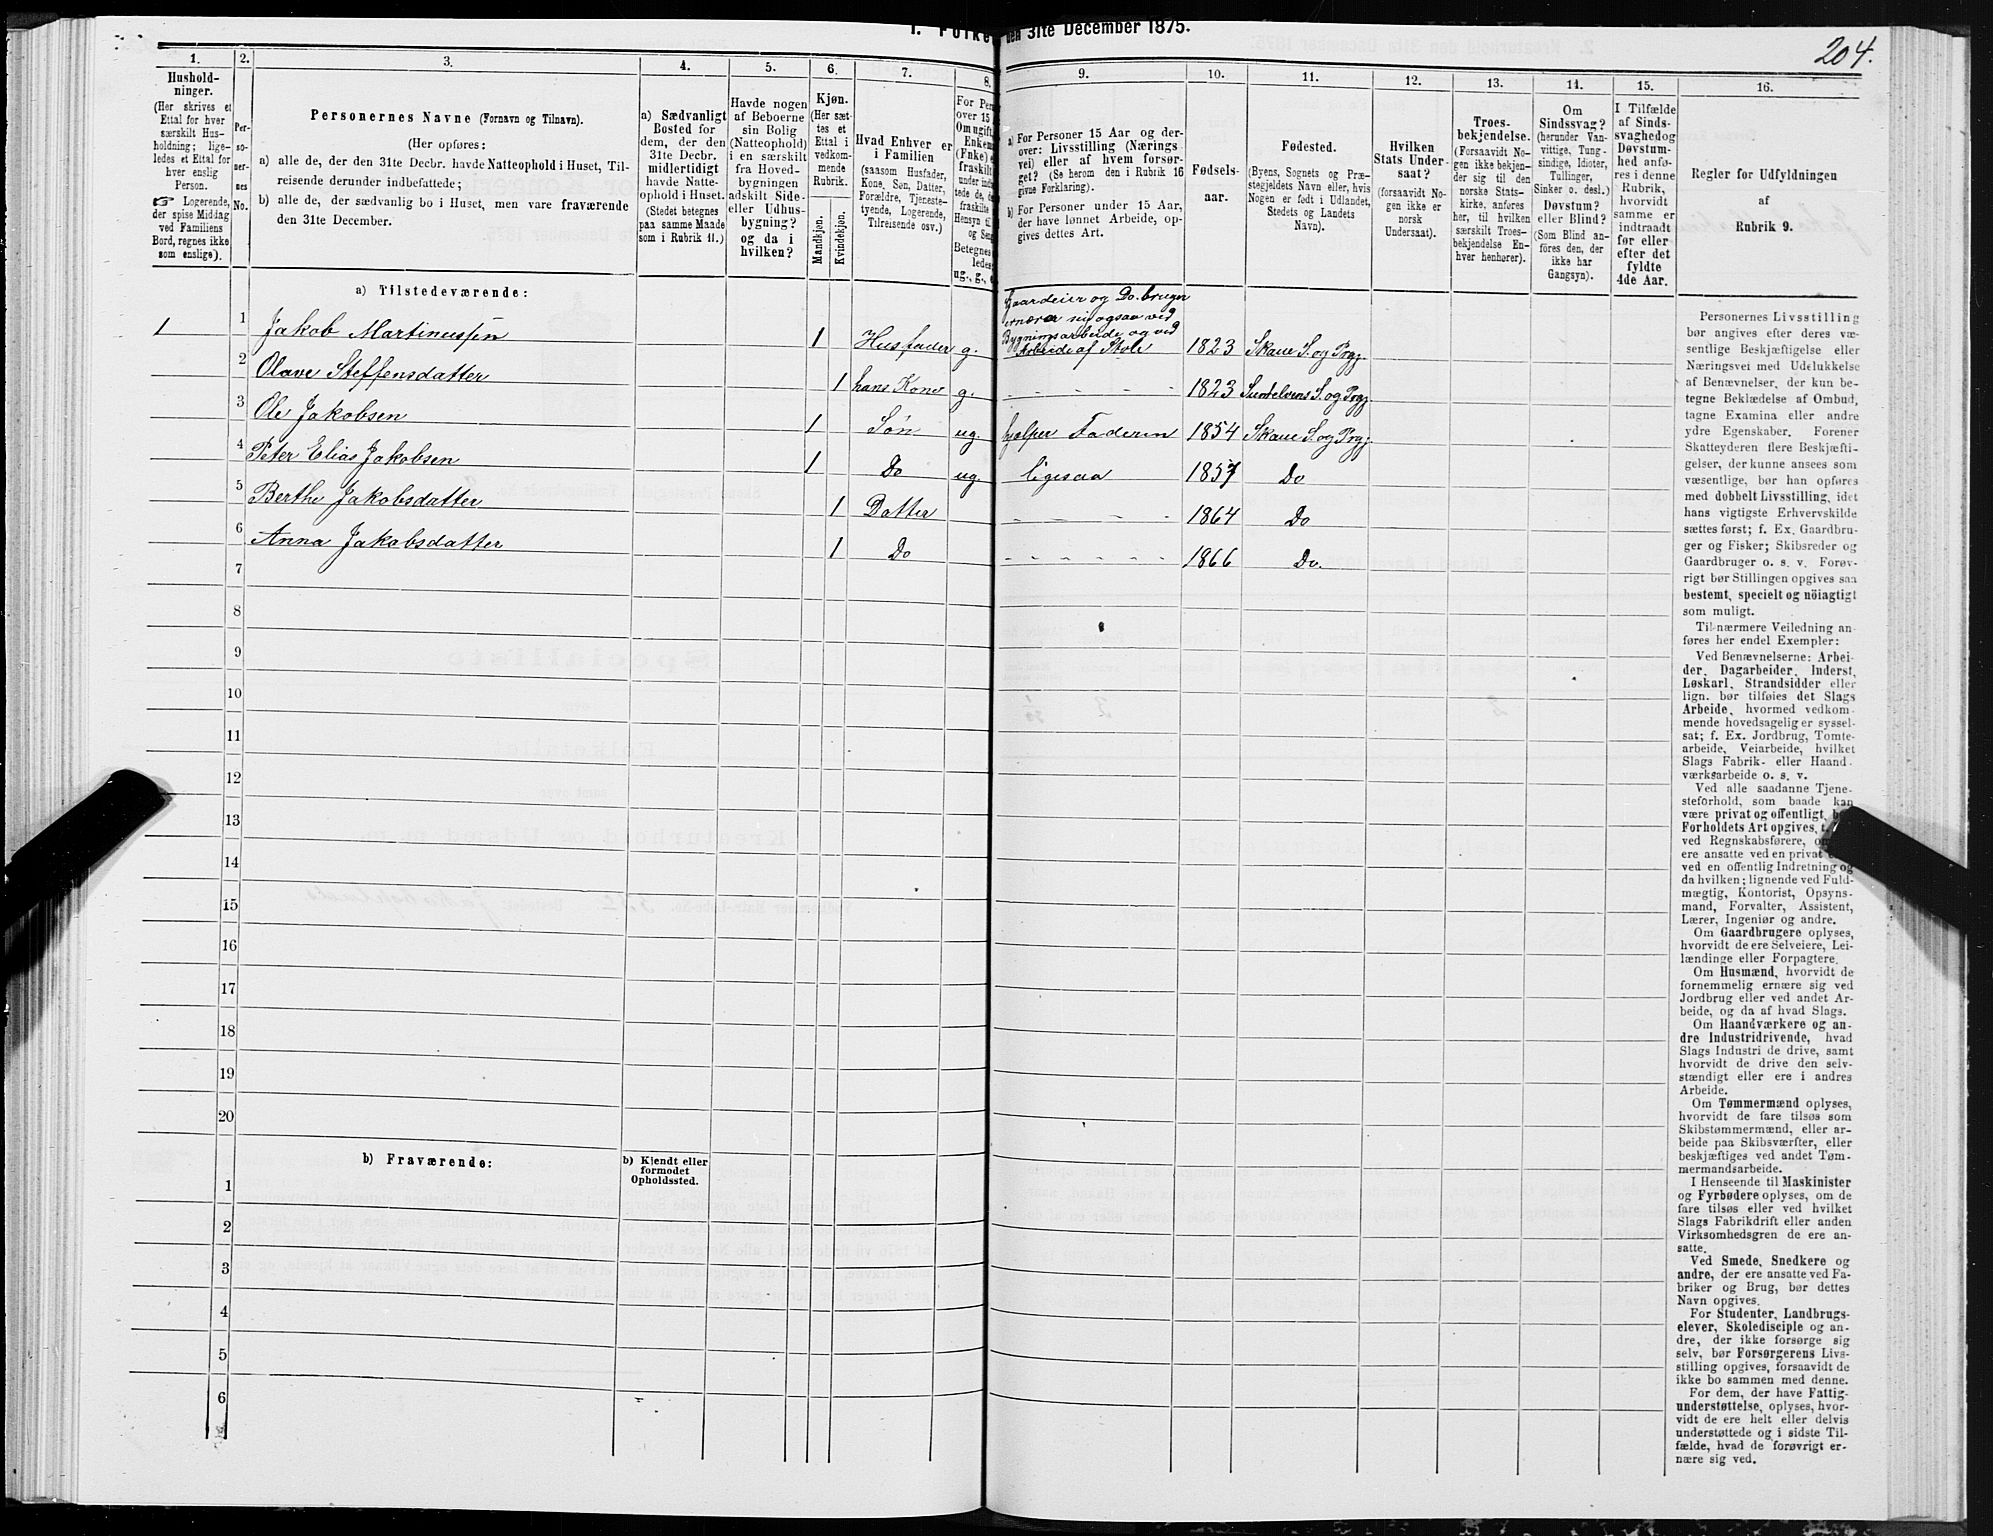 1. Folke
den 31te December 1875.
204.
1.
2.
3.
4.
5.
6.
7.
8.
9.
10.
11.
12.
13.
14.
15.
16.
Hushold-
ninger.
(Her skrives et
Ettal for hver
særskilt Hus-
holdning; lige-
ledes et Ettal for
hver enslig
Person.
☞ Logerende,
der spise Middag
ved Familiens
Bord, regnes ikke
som enslige).
Per-
so-
ner-
nes
No.
Personernes Navne (Fornavn og Tilnavn).
(Her opføres:
a) alle de, der den 31te Decbr. havde Natteophold i Huset, Til-
reisende derunder indbefattede;
b) alle de, der sædvanlig bo i Huset, men vare fraværende
den 31te December.
a) Sædvanligt
Bosted for
dem, der den
31te Decbr.
midlertidigt
havde Natte-
ophold i Huset.
(Stedet betegnes
paa samme Maade
som i Rubrik 11.)
Havde nogen
af Beboerne
sin Bolig
(Natteophold)
i en særskilt
fra Hoved-
bygningen
adskilt Side-
eller Udhus-
bygning?
og da i
hvilken?
Kjøn.
(Her sæt-
tes et
Ettal i
vedkom-
mende
Rubrik.
Mandkjøn.
Kvindekjøn.
Hvad Enhver er
i Familien
(saasom Husfader,
Kone, Søn, Datter,
Forældre, Tjeneste-
tyende, Logerende,
Tilreisende osv.)
For Per
over 15
Om ugift
Enkem
(Fnke) e
fraskilt
under indb
tede de,
fraskilte
Hensyn til
og Sen
Betegnes
ledes:
ug., g., e
a) For Personer 15 Aar og der-
over: Livsstilling (Nærings
vei) eller af hvem forsør-
get? (Se herom den i Rubrik 16
givne Forklaring).
b) For Personer under 15 Aar,
der have lønnet Arbeide, op-
gives dettes Art.
Fødsels-
aar.
Fødested.
(Byens, Sognets og Præ-
stegjeldets Navn eller, hvis
Nogen er født i Udlandet,
Stedets og Landets
Navn).
Hvilken
Stats Under-
saat?
(forsaavidt No-
gen ikke er
norsk
Undersaat).
Troes-
bekjendelse.
(Forsaavidt No-
gen ikke bekjen-
der sig til den
norske Stats-
kirke, anføres
her, til hvilken
særskilt Troes-
bekjendelse En-
hver henhører).
Om
Sindssvag?
(herunder Van-
vittige, Tung-
sindige, Idioter,
Tullinger,
Sinker o. desl.)
Døvstum?
eller Blind?
(Som Blind an-
føres den, der
ikke har
Gangsyn).
I Tilfælde
af Sinds-
svaghed og
Døvstum-
hed anfø-
res i denne
Rubrik,
hvorvidt
samme er
indtraadt
før eller
efter det
fyldte
4de Aar.
Regler for Udfyldningen
af
Rubrik 9.
a) Tilstedeværende:
Gaardeier og Do. bruger
ernærer sig ogsaa ved
Bygningsarbeide og ved
Arbeide af Stole
1 1 Jakob Martinussen 1 Husfader g. 1823 Skaue S. og Prgj.
2 Olave Steffensdatter 1 hans Kone g. - - - - - 1823 S. og Prgj.
3 Ole Jakobsen 1 Søn ug. hjælper Faderen 1854 Skaue S. og Prgj.
4 Peter Elias Jakobsen 1 Do ug. ligesaa 1857 Do
5 Berthe Jakobsdatter 1 Datter - - - - - 1864 Do
6 Anna Jakobsdatter 1 Do - - - - - - 1866 Do.
7
8
9
10
11
12
13
14
15
16
17
18
19
20
b) Fraværende:
b) Kjendt eller
formodet
Opholdssted.
1
2
3
4
5
6
Personernes Livsstilling
bør angives efter deres væ-
sentlige Beskjæftigelse eller
Næringsvei med Udelukkelse
af Benævnelser, der kun be-
tegne Beklædelse af Ombud,
tagne Examina eller andre
ydre Egenskaber. Forener
Skatteyderen flere Beskjæfti-
gelser, der kunne ansees som
væsentlige, bør han opføres
med dobbelt Livsstilling, idet
hans vigtigste Erhvervskilde
sættes først; f. Ex. Gaardbru-
ger og Fisker; Skibsreder og
Gaardbruger o. s. v. Forøv-
rigt bør Stillingen opgives saa
bestemt, specielt og nöiagtigt
som muligt.
Til nærmere Veiledning an-
føres her endel Exempler:
Ved Benævnelserne: Arbei-
der, Dagarbeider, Inderst,
Løskarl, Strandsidder eller
lign. bør tilføies det Slags
Arbeide, hvormed vedkom-
mende hovedsagelig er syssel-
sat; f. Ex. Jordbrug, Tomte-
arbeide, Veiarbeide, hvilket
Slags Fabrik- eller Haand-
værksarbeide o. s. v.
Ved alle saadanne Tjene-
steforhold, som baade kan
være privat og offentlig, b
Forholdets Art opgives, t.
ved Regnskabsførere, om
ere ansatte ved en privat e
ved en offentlig Indretning og
da hvilken; lignende ved Fuld-
mægtig, Kontorist, Opsyns-
mand, Forvalter, Assistent,
Lærer, Ingeniør og andre.
Om Gaardbrugere oplyses,
hvorvidt de ere Selveiere, Lei-
lændinge eller Forpagtere.
Om Husmænd, hvorvidt de
fornemmelig ernære sig ved
Jordbrug eller ved andet Ar-
beide, og da af hvad Slags.
Om Haandværkere og an-
dre Industridrivende, hvad
Slags Industri de drive, samt
hvorvidt de drive den selv-
stændigt eller ere i andres
Arbeide.
Om Tømmermænd oplyses,
hvorvidt de fare tilsøs som
Skibstømmermænd, eller ar-
beide paa Skibsværfter, eller
beskjæftiges ved andet Tøm-
mermandsarbeide.
I Henseende til Maskinister
og Fyrbødere oplyses, om de
fare tilsøs eller ved hvilket
Slags Fabrikdrift eller anden
Virksomhedsgren de ere an-
satte.
Ved Smede, Snedkere og
andre, der ere ansatte ved Fa-
briker og Brug, bør dettes
Navn opgives.
For Studenter, Landbrugs-
elever, Skoledisciple og an-
dre, der ikke forsørge sig
selv, bør Forsørgerens Livs-
stilling opgives, forsaavidt de
ikke bo sammen med denne.
For dem, der have Fattig-
understøttelse, oplyses, hvor-
vidt de ere helt eller delvis
understøttede og i sidste Til-
fælde, hvad de forøvrigt er-
nære sig ved.